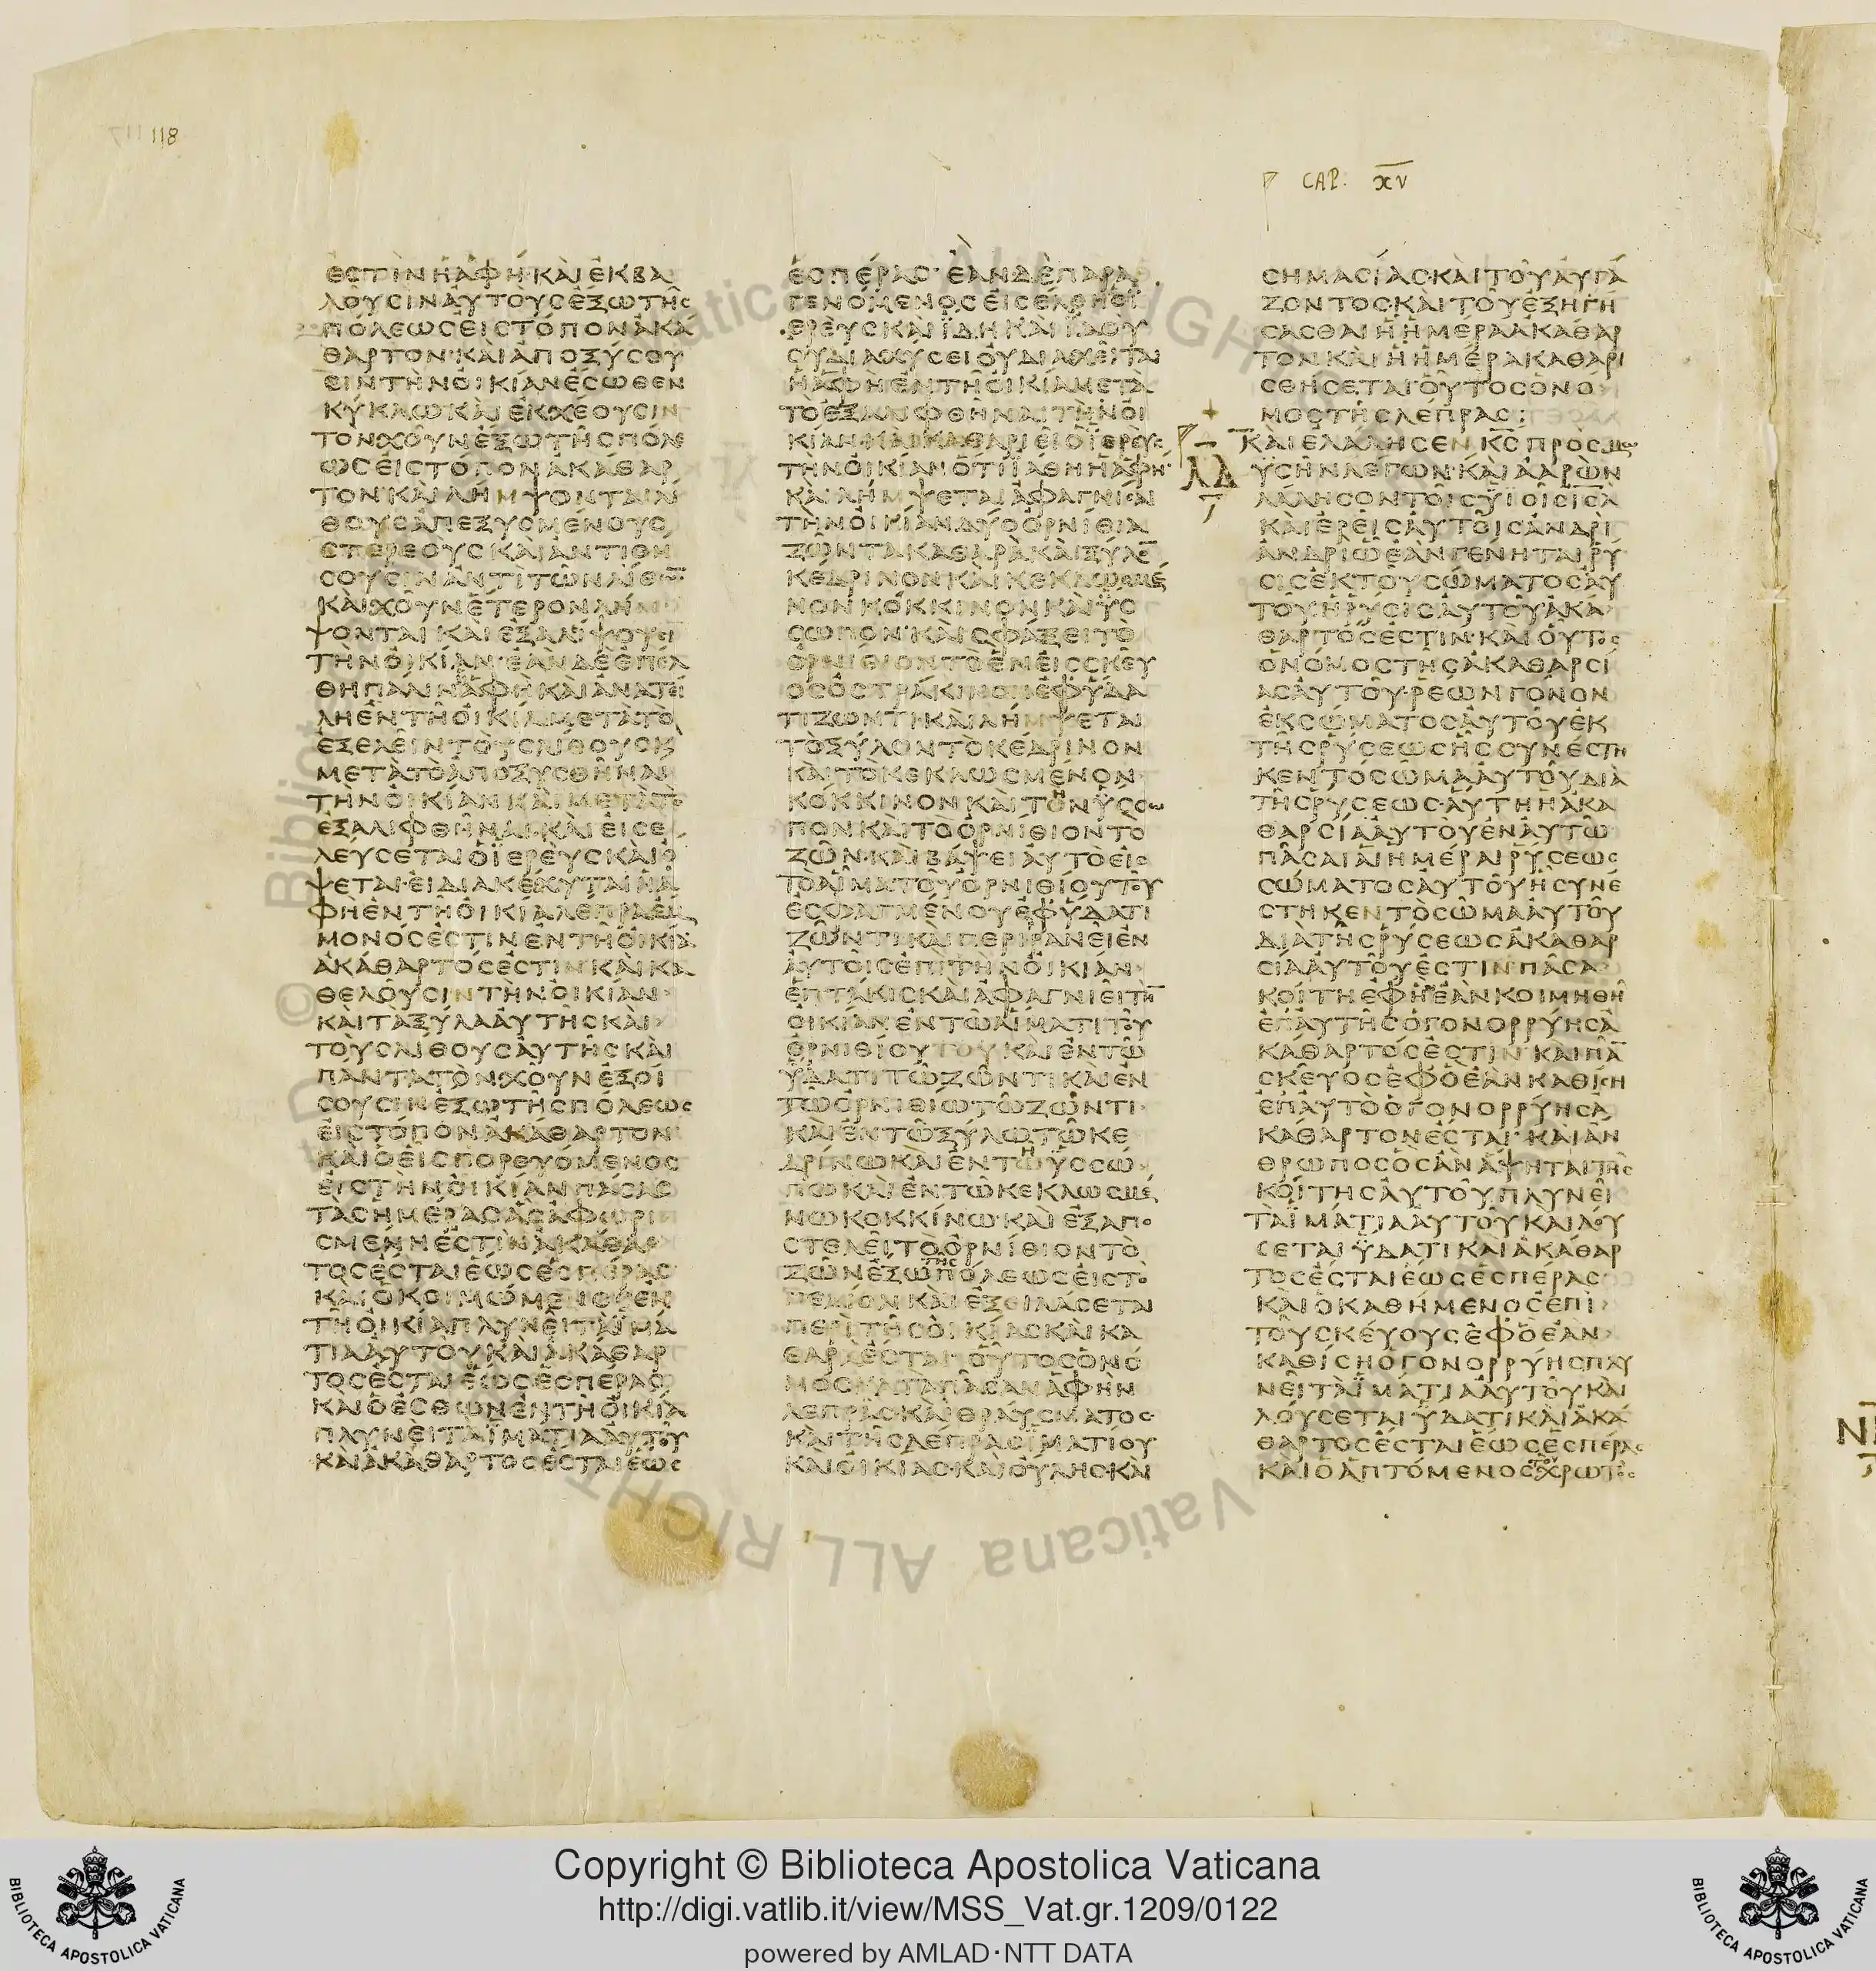 118
CAP. XV
ΕСΤΙΝΗΑΦΗ·ΚΑΙΕΚΒΑ
ΛΟΥСΙΝΑΥΤΟΥСΕΞΩΤΗС
ΠΟΛΕΩСΕΙСΤΟΠΟΝΑΚΑ
ΘΑΡΤΟΝ·ΚΑΙΑΠΟΞΥСΟΥ
СΙΝΤΗΝΟΙΚΙΑΝΕСΩΘΕΝ
ΚΥΚΛΩΚΑΙΕΚΧΕΟΥСΙΝ
ΤΟΝΧΟΥΝΕΞΩΤΗСΠΟΛΕ
ΩСΕΙСΤΟΠΟΝΑΚΑΘΑΡ
ΤΟΝ·ΚΑΙΛΗΜΨΟΝΤΑΙΛΙ
ΘΟΥСΑΠΕΞΥСΜΕΝΟΥС
СΤΕΡΕΟΥСΚΑΙΑΝΤΙΘΗ
СΟΥСΙΝΑΝΤΙΤΩΝΛΙΘΩ̅
ΚΑΙΧΟΥΝΕΤΕΡΟΝΛΗΜ
ΨΟΝΤΑΙΚΑΙΕΞΑΛΙΨΟΥСΙ
ΤΗΝΟΙΚΙΑΝ·ΕΑΝΔΕΕΠΕΛ
ΘΗΠΑΛΙΝΑΦΗΚΑΙΑΝΑΤΕΙ
ΛΗΕΝΤΗΟΙΚΙΑΜΕΤΑΤΟ
ΕΞΕΛΕΙΝΤΟΥСΛΙΘΟΥСΚ
ΜΕΤΑΤΟΑΠΟΞΥСΘΗΝΑΙ
ΤΗΝΟΙΚΙΑΝΚΑΙΜΕΤΑΤΟ
ΕΞΑΛΙΦΘΗΝΑΙ·ΚΑΙΕΙСΕ
ΛΕΥСΕΤΑΙΟΪΕΡΕΥСΚΑΙΟ
ΨΕΤΑΙ·ΕΙΔΙΑΚΕΧΥΤΑΙΗΑ
ΦΗΕΝΤΗΟΙΚΙΑΛΕΠΡΑΕΜ
ΜΟΝΟСΕСΤΙΝΕΝΤΗΟΙΚΙΑ
ΑΚΑΘΑΡΤΟСΕСΤΙΝΚΑΙΚΑ
ΘΕΛΟΥСΙΝΤΗΝΟΙΚΙΑΝ
ΚΑΙΤΑΞΥΛΑΑΥΤΗСΚΑΙ
ΤΟΥСΛΙΘΟΥСΑΥΤΗСΚΑΙ
ΠΑΝΤΑΤΟΝΧΟΥΝΕΞΟΙ
СΟΥСΙΝΕΞΩΤΗСΠΟΛΕΩС
ΕΙСΤΟΠΟΝΑΚΑΘΑΡΤΟΝ
ΚΑΙΟΕΙСΠΟΡΕΥΟΜΕΝΟС
ΕΙСΤΗΝΟΙΚΙΑΝΠΑСΑС
ΤΑСΗΜΕΡΑСΑСΑΦΩΡΙ
СΜΕΝΗΕСΤΙΝΑΚΑΘΑΡ
ΤΟСΕСΤΑΙΕΩСΕСΠΕΡΑС
ΚΑΙΟΚΟΙΜΩΜΕΝΟСΕΝ
ΤΗΟΙΚΙΑΠΛΥΝΕΙΤΑΪΜΑ
ΤΙΑΑΥΤΟΥΚΑΙΑΚΑΘΑΡ
ΤΟСΕСΤΑΙΕΩСΕСΠΕΡΑС
ΚΑΙΟΕСΘΩΝΕΝΤΗΟΙΚΙΑ
ΠΛΥΝΕΙΤΑΪΜΑΤΙΑΑΥΤΟΥ
ΚΑΙΑΚΑΘΑΡΤΟСΕСΤΑΙΕΩС
ΕСΠΕΡΑС·ΕΑΝΔΕΠΑΡΑ
ΓΕΝΟΜΕΝΟСΕΙСΕΛΘΗΟΪ
ΕΡΕΥСΚΑΙΪΔΗΚΑΙΪΔΟΥ
ΟΥΔΙΑΧΥСΕΙΟΥΔΙΑΧΕΙΤΑΙ
ΗΑΦΗΕΝΤΗΟΙΚΙΑΜΕΤΑ
ΤΟΕΞΑΛΙΦΘΗΝΑΙΤΗΝΟΙ
ΚΙΑΝΚΑΙΚΑΘΑΡΙΕΙΟΪΕΡΕΥС
ΤΗΝΟΙΚΙΑΝΟΤΙΪΑΘΗΗΑΦΗ·
ΚΑΙΛΗΜΨΕΤΑΙΑΦΑΓΝΙСΑΙ
ΤΗΝΟΙΚΙΑΝΔΥΟΟΡΝΙΘΙΑ
ΖΩΝΤΑΚΑΘΑΡΑΚΑΙΞΥΛΟ̅
ΚΕΔΡΙΝΟΝΚΑΙΚΕΚΛΩСΜΕ
ΝΟΝΚΟΚΚΙΝΟΝΚΑΙΫС
СΩΠΟΝ·ΚΑΙСΦΑΞΕΙΤΟ
ΟΡΝΙΘΙΟΝΤΟΕΝΕΙССΚΕΥ
ΟСΟСΤΡΑΚΙΝΟΝΕΦΥΔΑ
ΤΙΖΩΝΤΙΚΑΙΛΗΜΨΕΤΑΙ
ΤΟΞΥΛΟΝΤΟΚΕΔΡΙΝΟΝ
ΚΑΙΤΟΚΕΚΛΩСΜΕΝΟΝ
ΚΟΚΚΙΝΟΝΚΑΙΤΟΝΥССΩ
ΠΟΝΚΑΙΤΟΟΡΝΙΘΙΟΝΤΟ
ΖΩΝ·ΚΑΙΒΑΨΕΙΑΥΤΟΕΙС
ΤΟΑΙΜΑΤΟΥΟΡΝΙΘΙΟΥΤΟΥ
ΕСΦΑΓΜΕΝΟΥΕΦΥΔΑΤΙ
ΖΩΝΤΙΚΑΙΠΕΡΙΡΑΝΕΙΕΝ
ΑΥΤΟΙСΕΠΙΤΗΝΟΙΚΙΑΝ
ΕΠΤΑΚΙСΚΑΙΑΦΑΓΝΙΕΙΤΗ̅
ΟΙΚΙΑΝΕΝΤΩΑΙΜΑΤΙΤΟΥ
ΟΡΝΙΘΙΟΥΤΟΥΚΑΙΕΝΤΩ
ΥΔΑΤΙΤΩΖΩΝΤΙΚΑΙΕΝ
ΤΩΟΡΝΙΘΙΩΤΩΖΩΝΤΙ
ΚΑΙΕΝΤΩΞΥΛΩΤΩΚΕ
ΔΡΙΝΩΚΑΙΕΝΤΩΥССΩ
ΠΩΚΑΙΕΝΤΩΚΕΚΛΩСΜΕ
ΝΩΚΟΚΚΙΝΩ·ΚΑΙΕΞΑΠΟ
СΤΕΛΕΙΤΟΟΡΝΙΘΙΟΝΤΟ
ΖΩΝΕΞΩΤΗСΠΟΛΕΩСΕΙСΤΟ
ΠΕΔΙΟΝΚΑΙΕΞΕΙΛΑСΕΤΑΙ
ΠΕΡΙΤΗСΟΙΚΙΑСΚΑΙΚΑ
ΘΑΡΑΕСΤΑΙ·ΟΥΤΟСΟΝΟ
ΜΟСΚΑΤΑΠΑСΑΝΑΦΗΝ
ΛΕΠΡΑСΚΑΙΘΡΑΥСΜΑΤΟС
ΚΑΙΤΗСΛΕΠΡΑСΪΜΑΤΙΟΥ
ΚΑΙΟΙΚΙΑС·ΚΑΙΟΥΛΗС·ΚΑΙ
СΗΜΑСΙΑС·ΚΑΙΤΟΥΑΥΓΑ
ΖΟΝΤΟС·ΚΑΙΤΟΥΕΞΗΓΗ
СΑСΘΑΙΗΗΜΕΡΑΑΚΑΘΑΡ
ΤΟΝΚΑΙΗΗΜΕΡΑΚΑΘΑΡΙ
СΘΗСΕΤΑΙ·ΟΥΤΟСΟΝΟ
ΜΟСΤΗСΛΕΠΡΑС:
ΛΔ
ΚΑΙΕΛΑΛΗСΕΝΚ̅С̅ΠΡΟСΜΩ
ΥСΗΝΛΕΓΩΝ·ΚΑΙΑΑΡΩΝ
ΛΑΛΗСΟΝΤΟΙСΥΙΟΙСΙ̅С̅Λ̅
ΚΑΙΕΡΕΙСΑΥΤΟΙСΑΝΔΡΙ
ΑΝΔΡΙΩΕΑΝΓΕΝΗΤΑΙΡΥ
СΙСΕΚΤΟΥСΩΜΑΤΟСΑΥ
ΤΟΥΗΡΥСΙСΑΥΤΟΥΑΚΑ
ΘΑΡΤΟСΕСΤΙΝ·ΚΑΙΟΥΤΟС
ΟΝΟΜΟСΤΗСΑΚΑΘΑΡСΙ
ΑСΑΥΤΟΥ·ΡΕΩΝΓΟΝΟΝ
ΕΚСΩΜΑΤΟСΑΥΤΟΥΕΚ
ΤΗСΡΥСΕΩСΗССΥΝΕСΤΗ
ΚΕΝΤΟСΩΜΑΑΥΤΟΥΔΙΑ
ΤΗСΡΥСΕΩС·ΑΥΤΗΗΑΚΑ
ΘΑΡСΙΑΑΥΤΟΥΕΝΑΥΤΩ
ΠΑСΑΙΑΙΗΜΕΡΑΙΡΥСΕΩС
СΩΜΑΤΟСΑΥΤΟΥΗСΥΝΕ
СΤΗΚΕΝΤΟСΩΜΑΑΥΤΟΥ
ΔΙΑΤΗСΡΥСΕΩСΑΚΑΘΑΡ
СΙΑΑΥΤΟΥΕСΤΙΝΠΑСΑ
ΚΟΙΤΗΕΦΗΕΑΝΚΟΙΜΗΘΗ
ΕΠΑΥΤΗСΟΓΟΝΟΡΡΥΗСΑ
ΚΑΘΑΡΤΟСΕСΤΙΝ·ΚΑΙΠΑ̅
СΚΕΥΟСΕΦΟΕΑΝΚΑΘΙСΗ
ΕΠΑΥΤΟΟΓΟΝΟΡΡΥΗСΑ
ΚΑΘΑΡΤΟΝΕСΤΑΙ·ΚΑΙΑΝ
ΘΡΩΠΟСΟСΑΝΑΨΗΤΑΙΤΗС
ΚΟΙΤΗСΑΥΤΟΥΠΛΥΝΕΙ
ΤΑΪΜΑΤΙΑΑΥΤΟΥΚΑΙΛΟΥ
СΕΤΑΙΫΔΑΤΙΚΑΙΑΚΑΘΑΡ
ΤΟСΕСΤΑΙΕΩСΕСΠΕΡΑС
ΚΑΙΟΚΑΘΗΜΕΝΟСΕΠΙ
ΤΟΥСΚΕΥΟΥСΕΦΟΕΑΝ
ΚΑΘΙСΗΟΓΟΝΟΡΡΥΗСΠΛΥ
ΝΕΙΤΑΪΜΑΤΙΑΑΥΤΟΥΚΑΙ
ΛΟΥСΕΤΑΙΥΔΑΤΙΚΑΙΑΚΑ
ΘΑΡΤΟСΕСΤΑΙΕΩСΕСΠΕΡΑС
ΚΑΙΟΑΠΤΟΜΕΝΟСΤΟΥΧΡΩΤΟС
Copyright © Biblioteca Apostolica Vaticana
http://digi.vatlib.it/view/MSS_Vat.gr.1209/0122
powered by AMLAD·NTT DATA
BIBLIOTECA APOSTOLICA VATICANA
BIBLIOTECA APOSTOLICA VATICANA